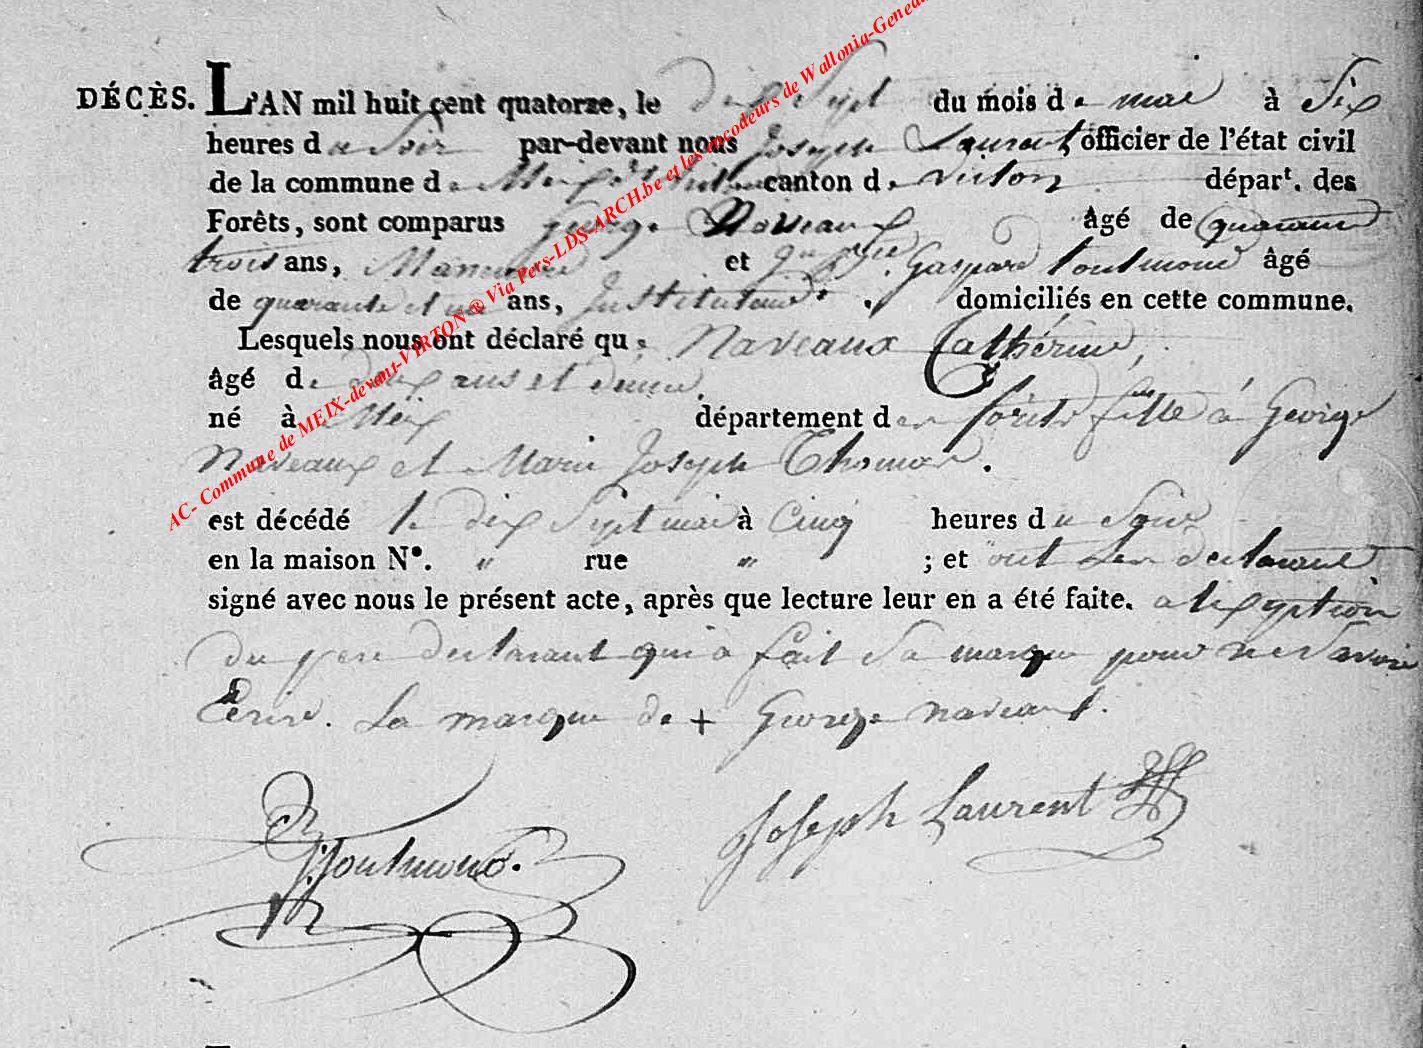 DÉCÈS. L'AN mil huit cent quatorze, le dix Sept du mois de mai à Six
heures du Soir par-devant nous Joseph Laurent officier de l'état civil
de la commune de Meix dt virton canton de virton dépar.t des
Forêts, sont comparus George Naveaux âgé de quarante
trois ans, Manoeuvre et Gaspard toulmond âgé
de quarante et un ans, Instituteur . domiciliés en cette commune.
Lesquels nous ont déclaré que Naveaux Catherine,
âgé de deux ans et demie,
né à Meix département des forêts fille à George
Naveaux et Marie Joseph Thomas.
est décédé le dix Sept mai à Cinq heures du Soir
en la maison N°. " rue " ; et ont les declarant
signé avec nous le présent acte, après que lecture leur en a été faite. a lexeption
du pere declarant qui a fait sa marque pour ne Savoir
Ecrire. La marque de + George naveaux.
Toulmond.
Joseph Laurent
AC- Commune de MEIX-devant-VIRTON ® Via Pers-LDS-ARCH.be et les encodeurs de Wallonia-Geneal